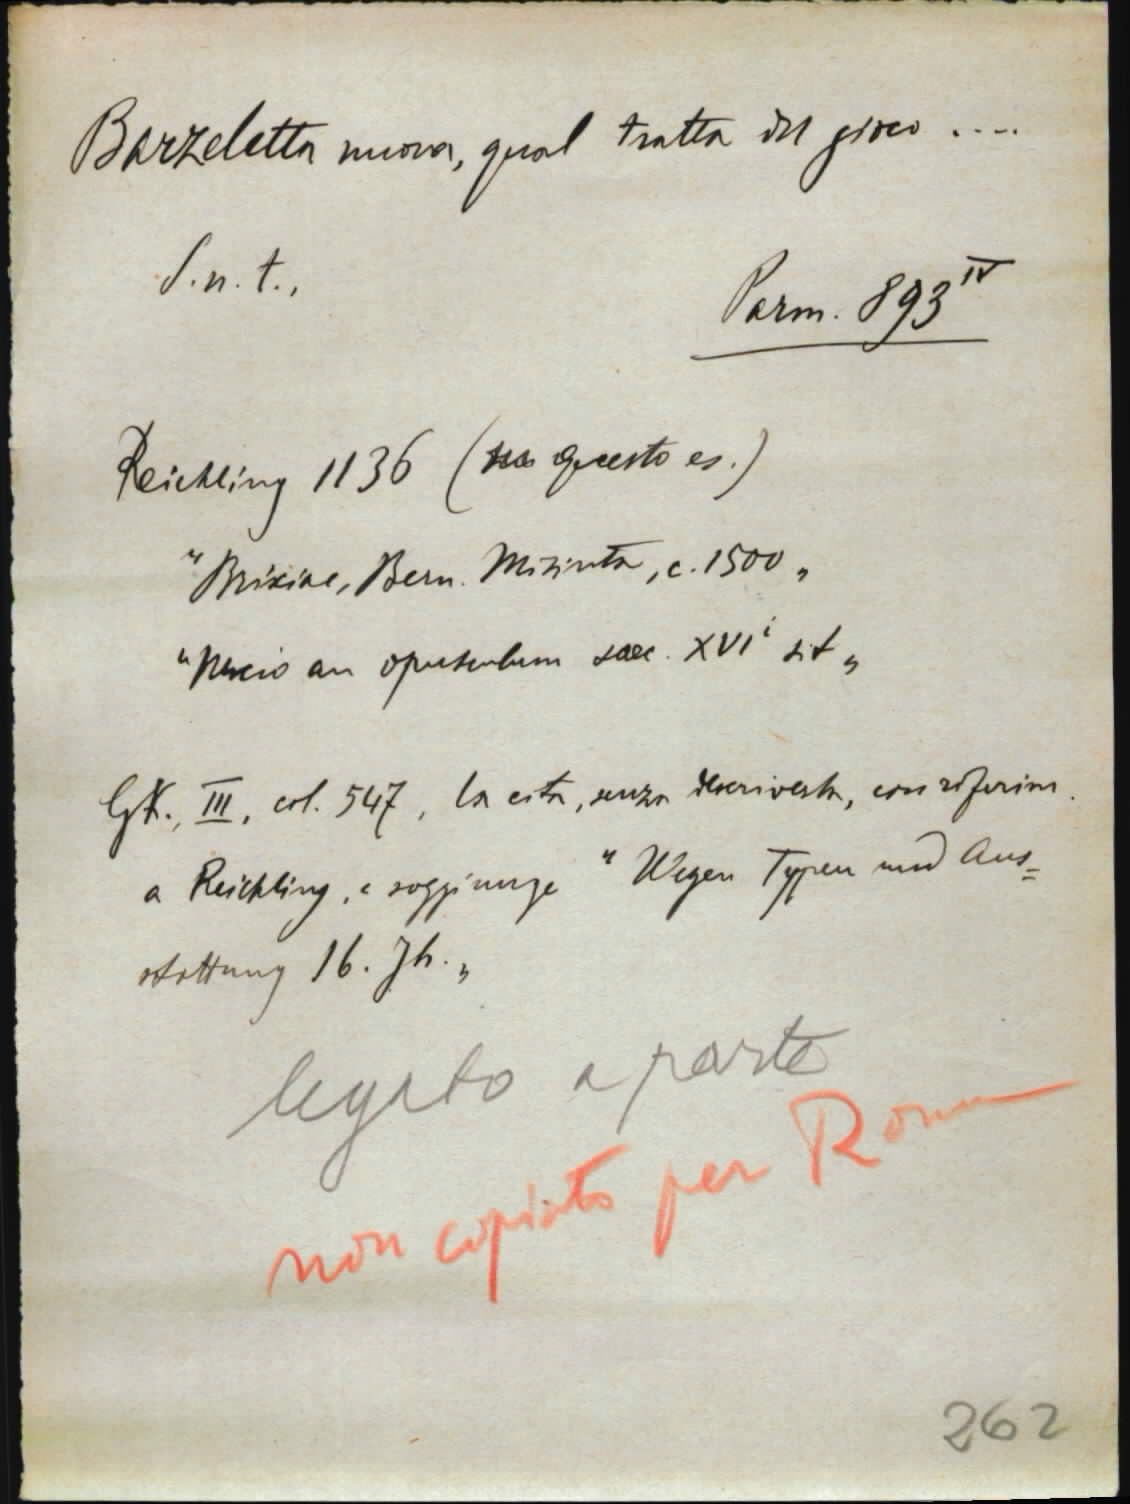 Barzeletta nuova, qual tratta del gioco ....
S.n.t.,
Parm. 893 IV
Reichling 1136 (su questo es.)
"Brixiae, Bern. Misinta, c. 1500"
"Nescio an opusculum saec. XVI i sit"
GK., III, col. 547, la cita, senza descriverla, con riferim.
a Reichling, e soggiunge "Wegen Typen und Aus=
stattung 16. Jh."
legato a parte
non copiato per Roma
262